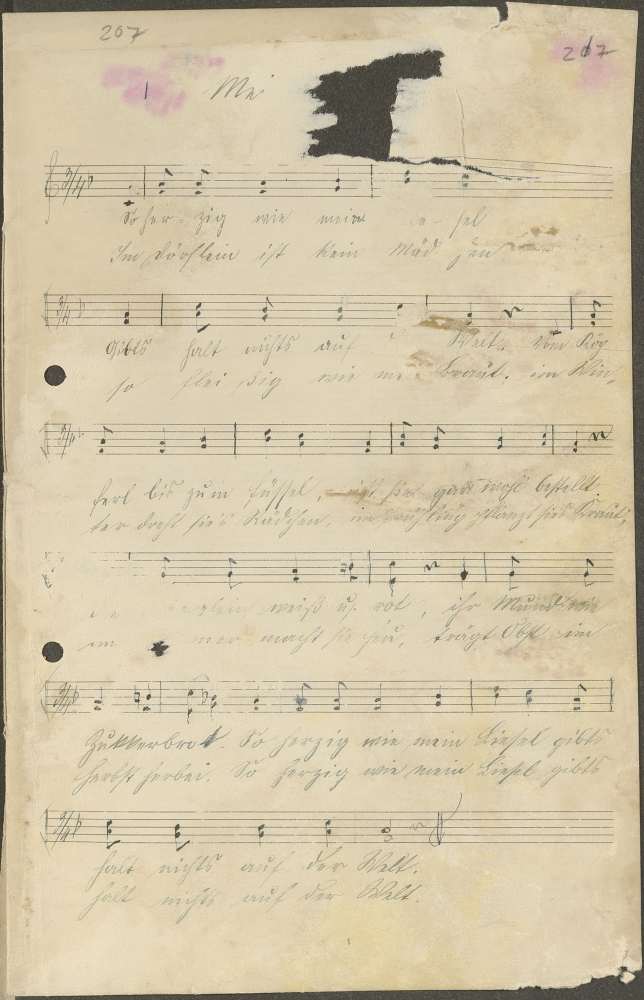 207
207
1 Me
So her-zig wie mein e-sel
Im Dörflein ist kein Mäd jen
Gibts halt nichts auf Welt. Vom Köp
so flei ßig wie me Braut. im Win,
ferl bis zum Füssel, ist sie gar wohl bestellt
ter dreht sie's Rädchen, im Frühling pflanzt sie's Kraut,
weiß u. rot, ihr Mund wie
im mer macht sie Heu, trägt Obst im
Zukkerbrot. So herzig wie mein Liesel gibts
Herbst herbei. So herzig wie mein Liesel gibts
halt nichts auf der Welt.
halt nichts auf der Welt.